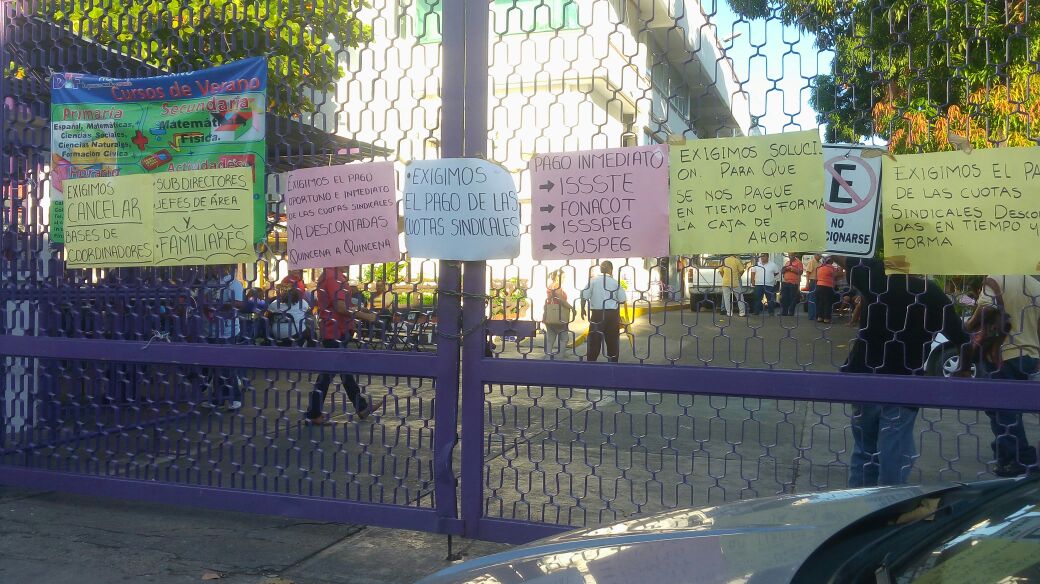 DIF
Cursos de Verano
Primaria
Español, Matemáticas,
Ciencias Sociales,
Ciencias Naturales,
Formación Cívica
Secundaria
Matemát
Física.
EXIGIMOS
CANCELAR
BASES DE
COORDINADORES
• SUBDIRECTORES
JEFES DE ÁREA
Y
• FAMILIARES
EXIGIMOS EL PAGO
OPORTUNO E INMEDIATO
DE LAS CUOTAS SINDICALES
YA DESCONTADAS
QUINCENA A QUINCENA
• EXIGIMOS
EL PAGO DE LAS
CUOTAS SINDICALES
PAGO INMEDIATO
→ ISSSTE
→ FONACOT
→ ISSSPEG
→ SUSPEG
EXIGIMOS SOLUCI
ON. PARA QUE
SE NOS PAGUE
EN TIEMPO Y FORMA
LA CAJA DE
AHORRO.
E
NO
CIONARSE
EXIGIMOS EL PA
DE LAS CUOTAS
SINDICALES DESCON
DAS EN TIEMPO Y
FORMA